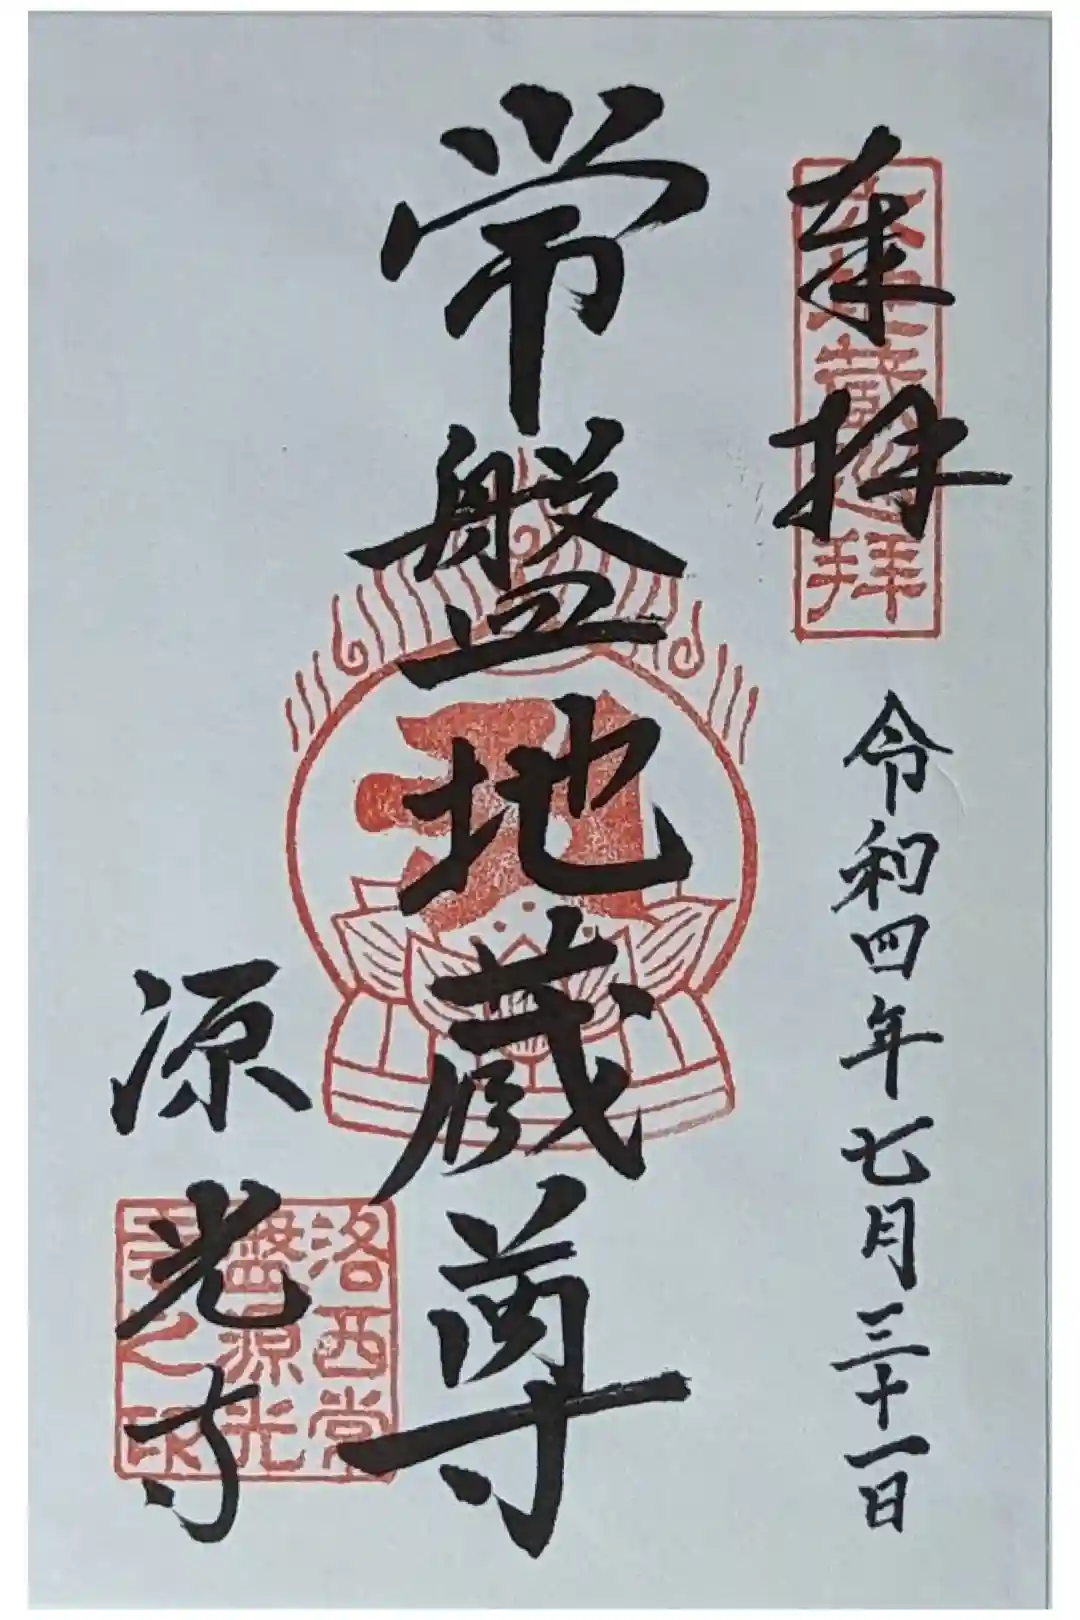 奉拝
令和四年七月三十一日
常盤地蔵尊
源光寺
洛西常
盤源光
寺之印